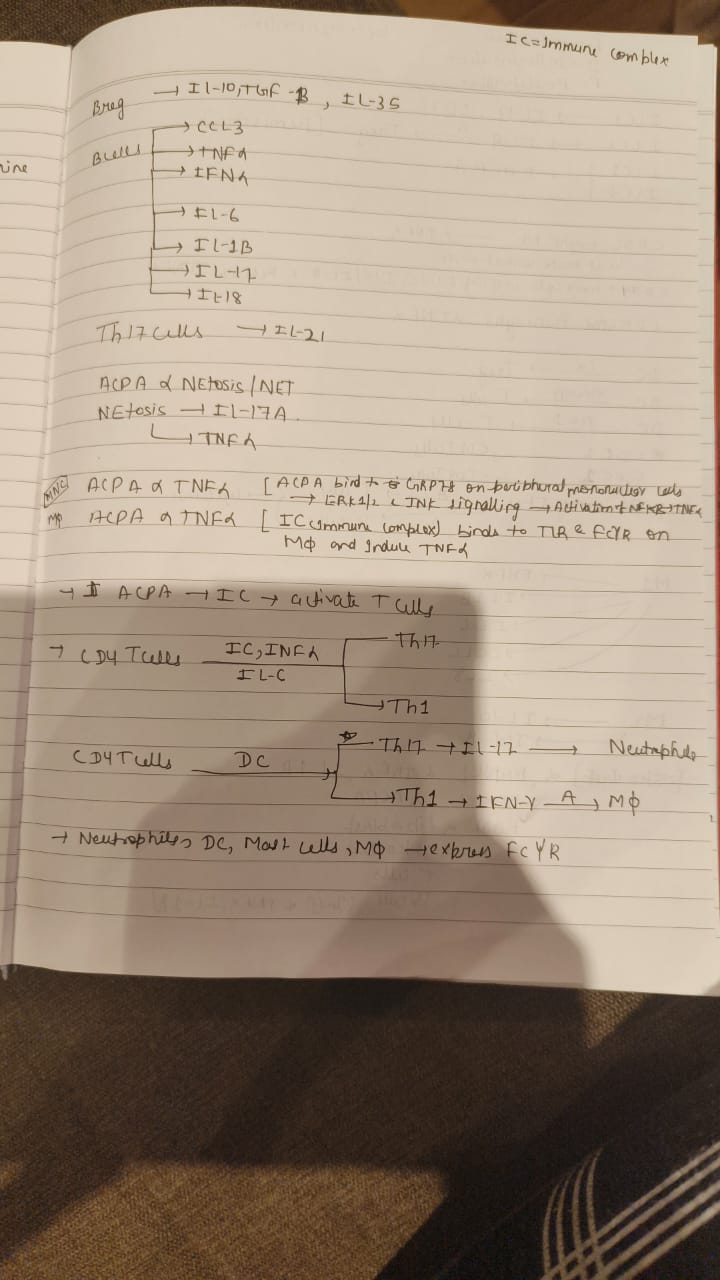 IC=Immune Complex
Breg → IL-10, TGF-B, IL-35
B cells → CCL3
→ TNFα
→ IFNα
→ IL-6
→ IL-1B
→ IL-17
→ IL-18
Th17 cells → IL-21
ACPA α NEtosis/NET
NEtosis → IL-17A
→ TNFα
MNC ACPA α TNFα [ACPA bind to GRP78 on peribhoral mononuclear cells
→ ERK1/2 & JNK signalling → Activation of NFKB→TNFα
MΦ ACPA α TNFα [IC (Immune Complex) binds to TLR & FCYR on
MΦ and Induce TNFα
→ ACPA → IC → activate T cells
→ CD4 T cells IC, INFα → Th17
IL-C
→ Th1
CD4 T cells DC → Th17 → IL-17 → Neutrophils
→ Th1 → IFN-γ A → MΦ
→ Neutrophils, DC, Mast cells, MΦ → express FCYR
ine